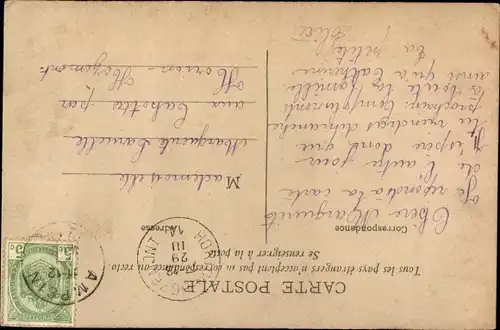 CARTE POSTALE
Tous les pays étrangers n'acceptent pas la correspondance au recto.
Se renseigner à la poste
Correspondance
Adresse
Chère Marguerite
Je réponds à ta carte
de l'autre jour
J'espère donc que
tu viendras dimanche
prochain.
toute la famille
ainsi qu'à Catherine
La petite
Alice
Mademoiselle
Marguerite
aux Cahottes par
Horion-Hozémont
HOZÉMONT
14
29
III
5c